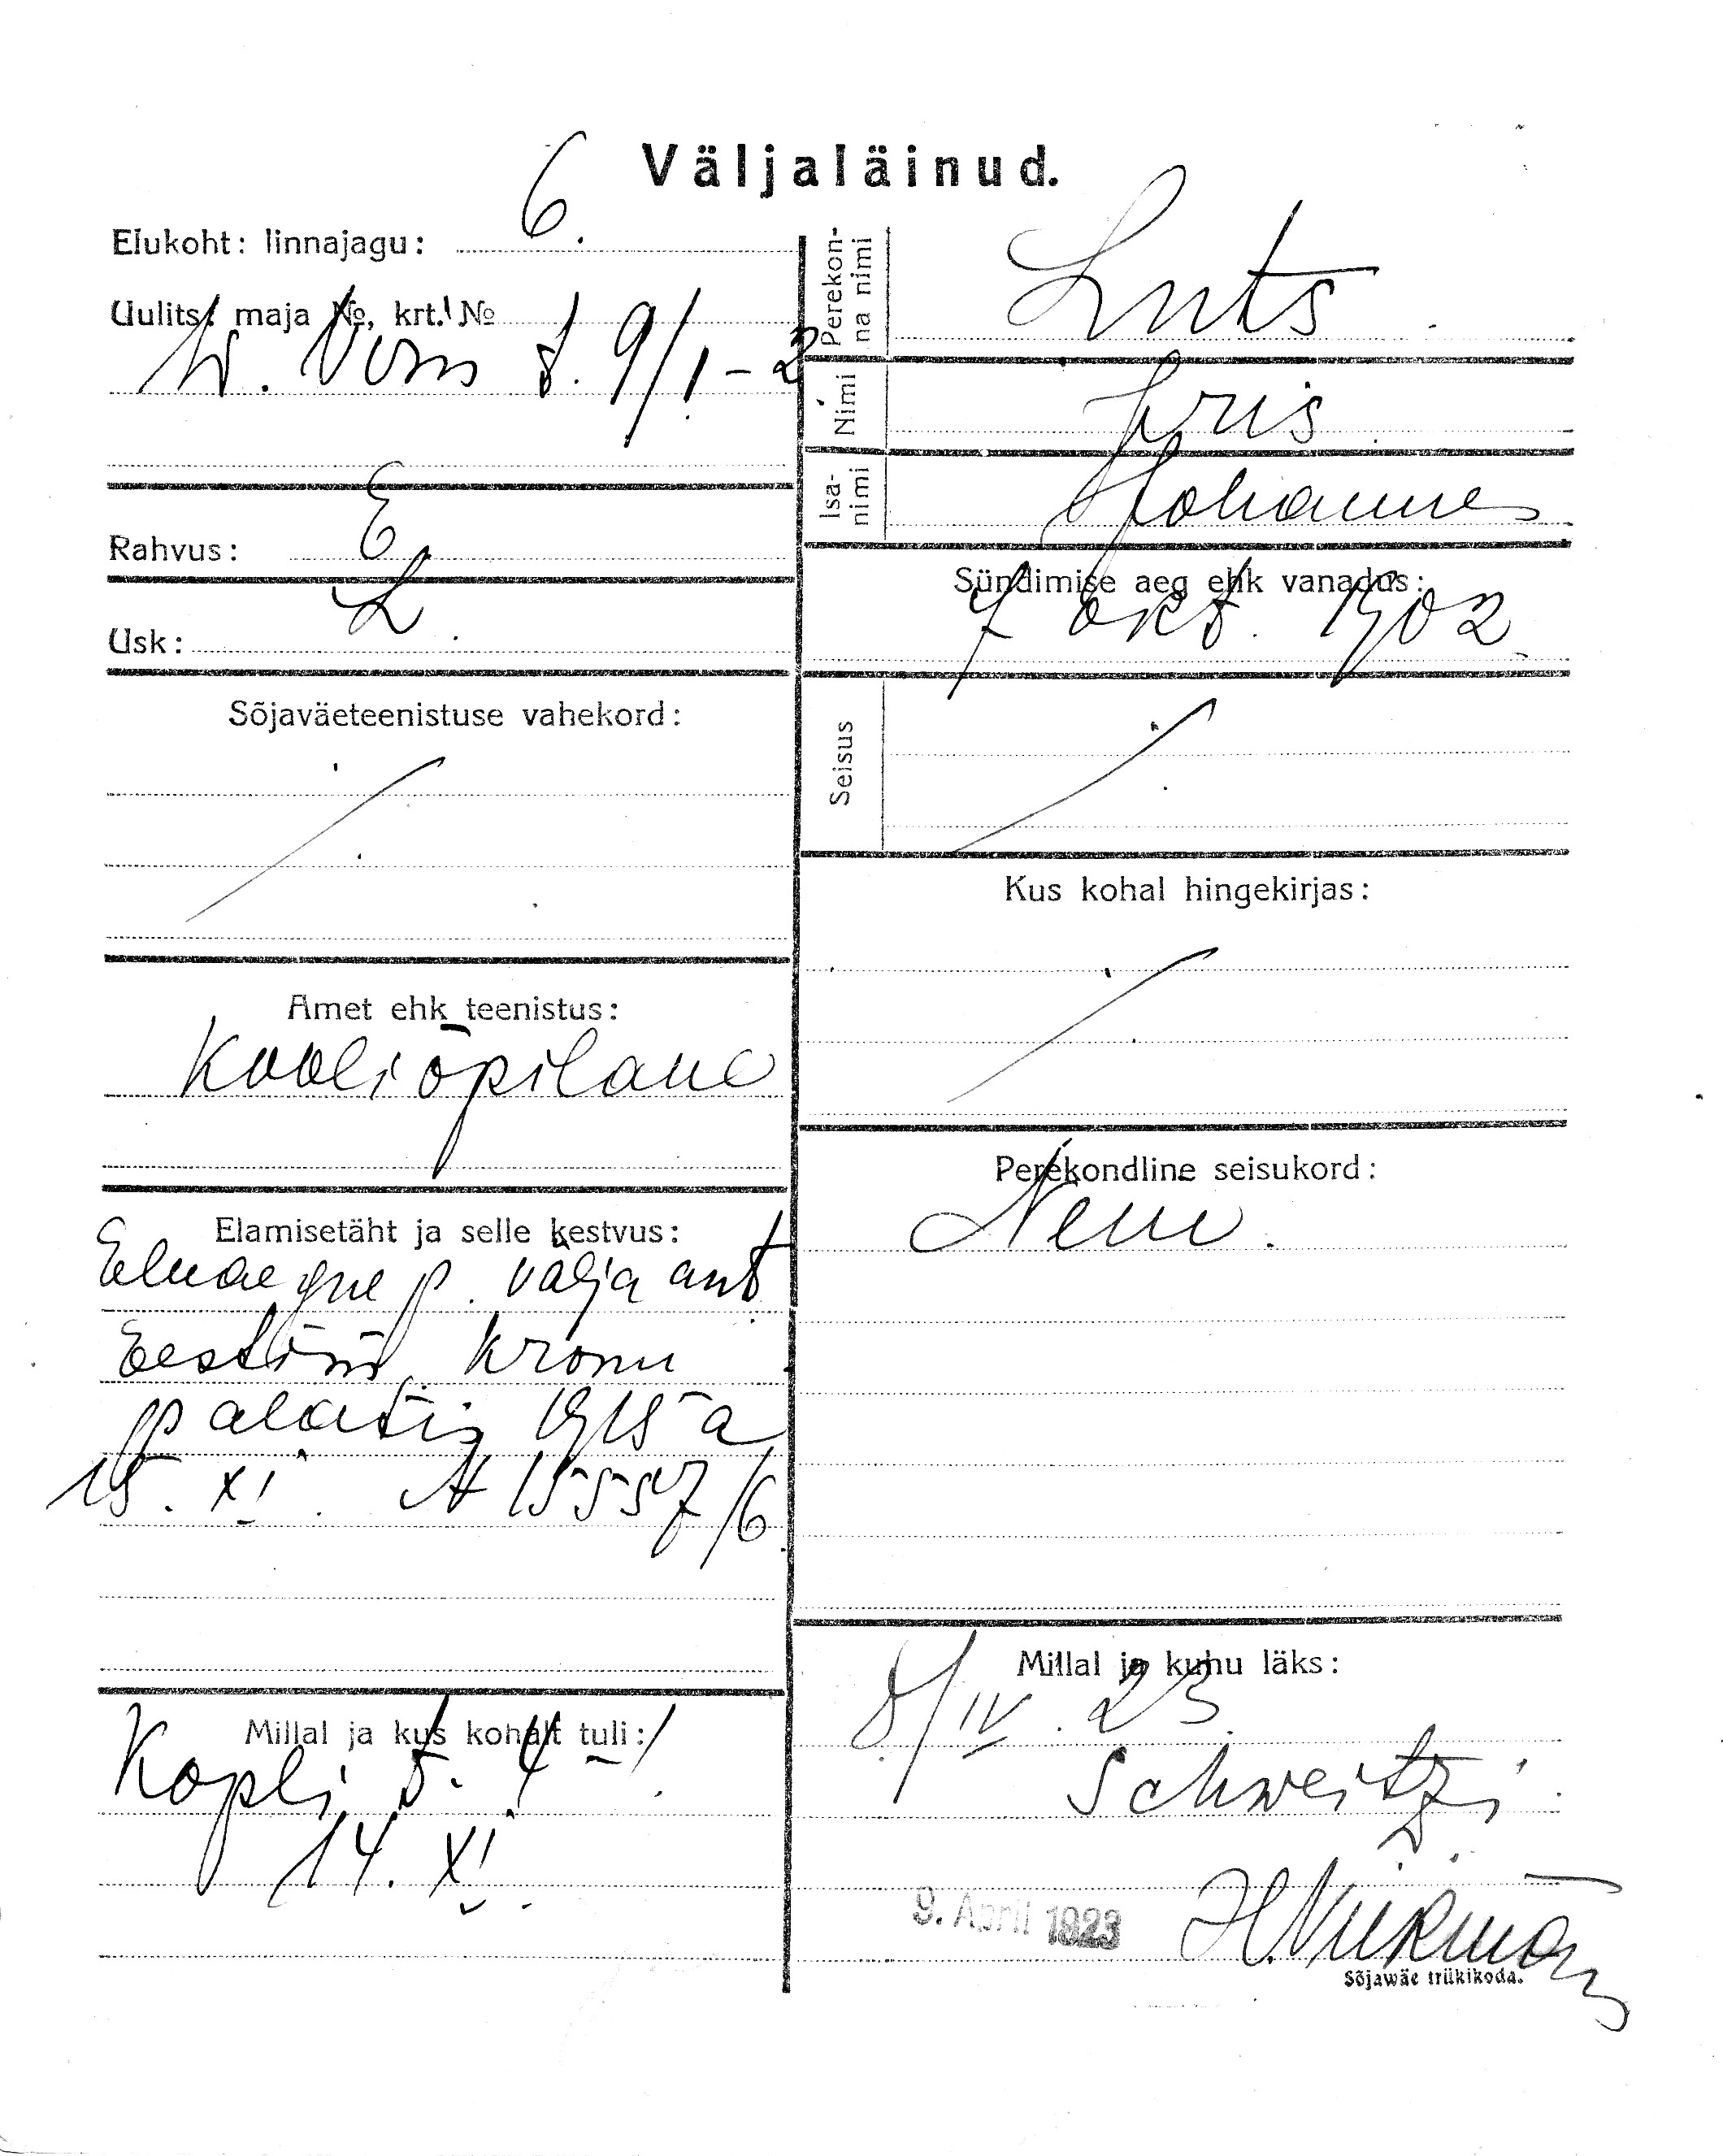 Väljaläinud.
Elukoht: linnajagu: 6.
Uulits, maja №, krt. №
9/1-2
Rahvus: E
Usk: L.
Sõjaväeteenistuse vahekord:
Amet ehk teenistus:
Kooliõpilane
Elamisetäht ja selle kestvus:
Eluaegne p. välja ant
Kronu
palatis 1918 a
15. XI. № 15557/6.
Millal ja kus kohalt tuli:
Kopli t. 4-1.
14. XI.
Perekonna nimi
Luts
Nimi
Isanimi
Johannes
Sündimise aeg ehk vanadus:
7 okt. 1902
Seisus
Kus kohal hingekirjas:
Perekondline seisukord:
Neiu.
Millal ja kuhu läks:
8/IV. 23.
Schweitzi
9. April 1923
Sõjawäe trükikoda.